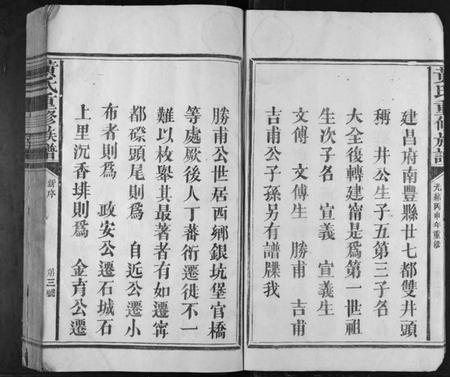 黃氏重修族譜
光緒丙申年重修
建昌府南豐縣廿七都雙井頭
稱 井公生子五第三子名
大全後轉建甯是為第一世祖
生次子名 宣義 宣義生
文傅 文傅生 勝甫 吉甫
吉甫公子孫另有譜牒我
勝甫公世居西鄉銀坑堡官橋
等處厥後人丁蕃衍遷徙不一
難以枚舉其最著者有如遷甯
都磜頭尾則為 自近公遷小
布者則為 政安公遷石城石
上里沉香排則為 金育公遷
黃氏重修族譜
新序
第三號